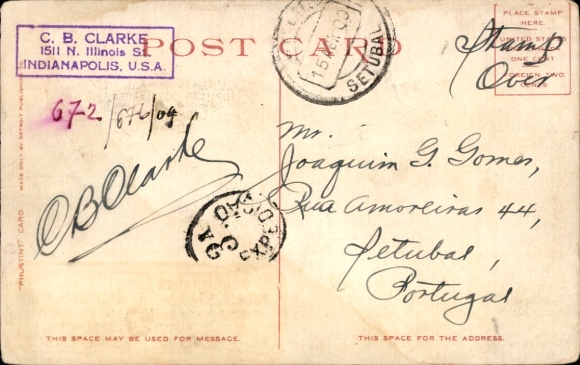 C. B. CLARKE
1511 N. Illinois St.
INDIANAPOLIS, U.S.A.
POST CARD
SETUBAL
PLACE STAMP
HERE.
UNITED STATES
ONE CENT
FOREIGN TWO
CENTS
Stamp
Over
672
/676/09
C B Clarke
Mr.
Joaquim G. Gomes,
Rua Amoreiras 44,
Setubal,
Portugal
3A
EXPEDIÇÃO
"PHOSTINT" CARD
MADE ONLY BY DETROIT PUBLISHING
THIS SPACE MAY BE USED FOR MESSAGE.
THIS SPACE FOR THE ADDRESS.